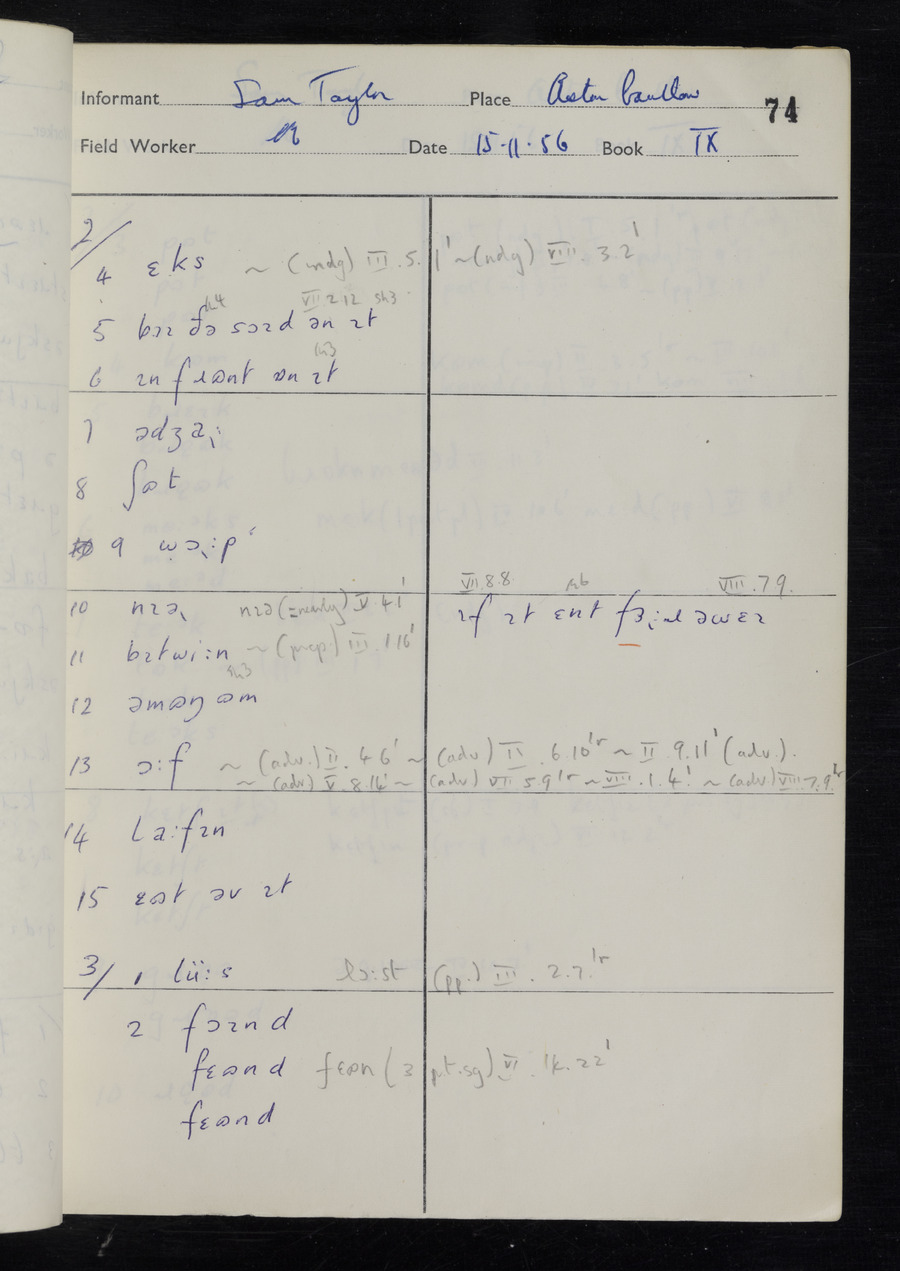 Informant Sam Taylor Place Aston Cantlow 74
Field Worker Date 15·11·56 Book IX
2/
4 ɛks ~ (indg) III.5.1' ~ (ndg) VIII.3.2'
VII 2 12 sh3
5 bɪɪ ðə sɔɪd ən ɪt
6 ɪn fɹɒnt ɒn ɪt
7 ədʒaˌ:
8 ʃɒt
9 wɔˌ:pʻ
VII 8.8 VIII.7 9.
10 nɪəˌ nɪə (= nearly) V 4 1' ɪf ɪt ɛnt fɜˌ:ɹl əwɛɪ
11 bɪtwi:n ~ (prep.) III.1 16'
sh3
12 əmɒŋ əm
13 ɔ:f ~ (adv.) II.4 6' ~ (adv) II.6.10'r ~ II 9.11' (adv).
~ (adv) V.8.14' ~ (adv) VII 5.9'r ~ VIII.1.4' ~ (adv) VIII.7.9'r
14 la:fɪn
15 ɛɒt əv ɪt
3/ 1 lüi:s lɔ:st (pp.) III.2.7.'r
2 fɔɪnd
fɛɒnd fɛɒn (3 p.t.sg) VI.14.22'
fɛɒnd